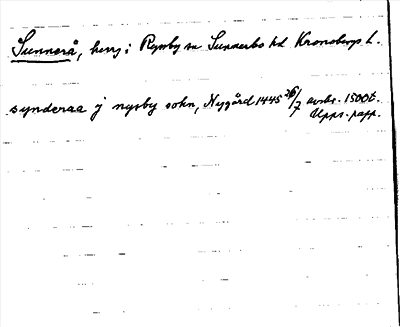 Sunnerå, herrg i Ryssby sn Sunnerbo hd. Kronobergs L.
synderaa j nysby sokn, Nygård 1445 26/7 avskr. 1500t.
Upps. papp.